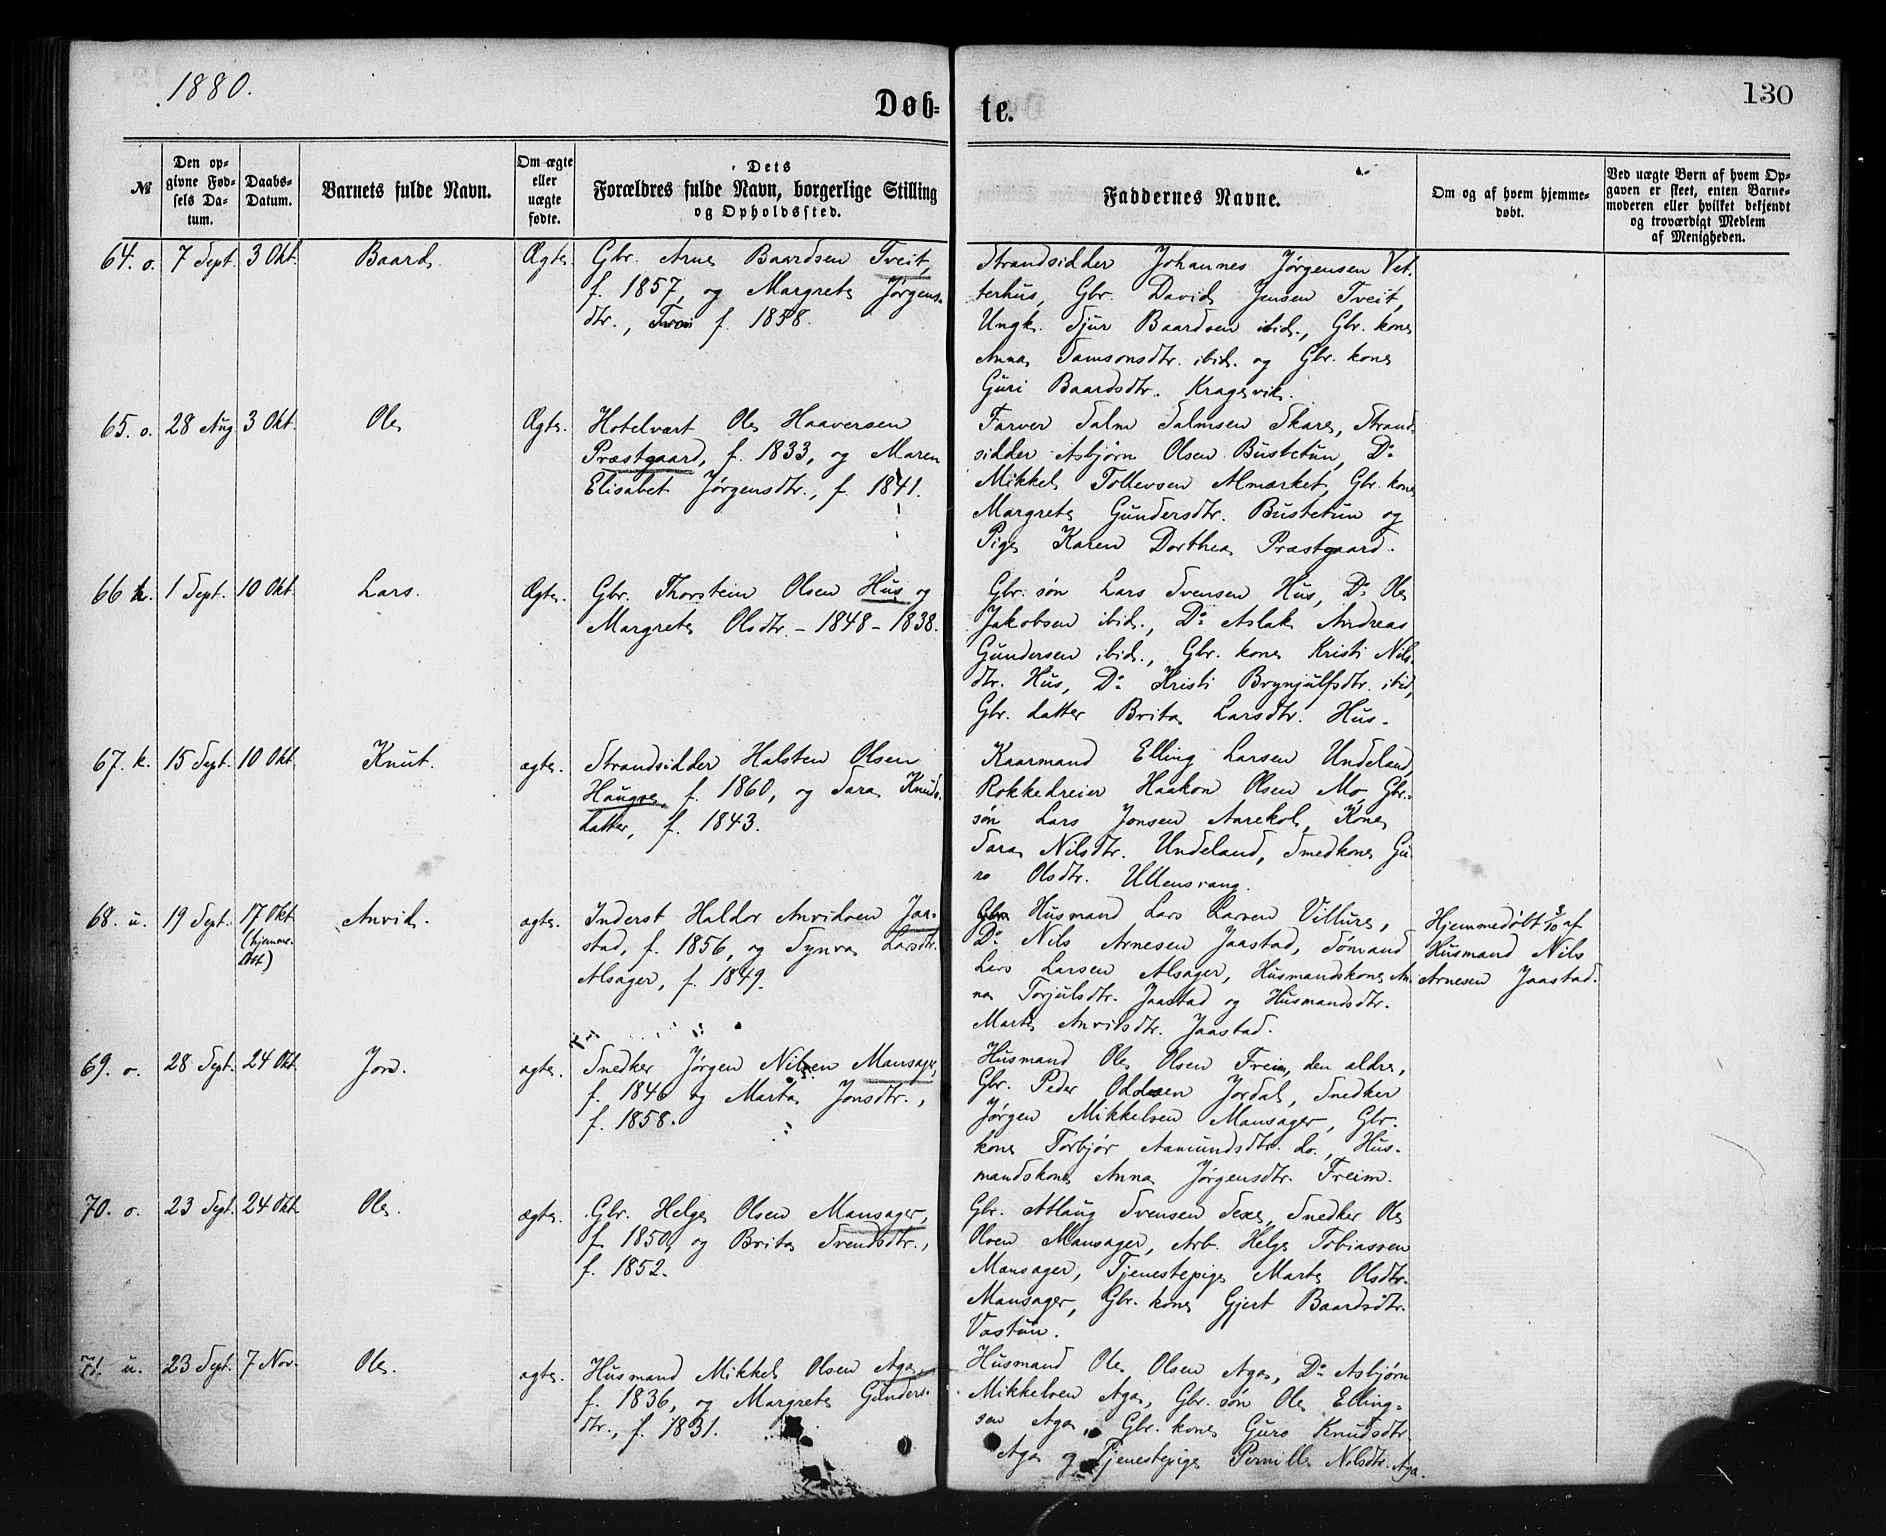 1880.
Døb=
te.
130
№
Den op=
givne Fød=
sels Da=
tum.
Daabs=
Datum.
Barnets fulde Navn.
Om ægte
eller
uægte
fødte.
Dets
Forældres fulde Navn, borgerlige Stilling
og Opholdssted.
Faddernes Navne.
Om og af hvem hjemme=
døbt.
Ved uægte Børn af hvem Op=
gaven er skeet, enten Barne=
moderen eller hvilket bekjendt
og troværdigt Medlem
af Menigheden.
64. o. 7 Sept. 3 Okt. Baard. Ægte.
Gbr. Arne Baardsen Tveit,
f. 1857, og Margrete Jørgens-
dtr., f. 1858.
Strandsidder Johannes Jørgensen Vet-
terhus, Gbr. David Jensen Tveit,
Ungk. Sjur Baardsen ibid., Gbr. kone
Anna Samsonsdtr. ibid. og Gbr. kone
Guri Baardsdtr. Kragesvik.
65. o. 28 Aug. 3 Okt. Ole Ægte.
Hotelvært Ole Haaversen
Præstgaard, f. 1833, og Maren
Elisabet Jørgensdtr., f. 1841.
Farver Salm Salmsen Skare, Strand-
sidder Asbjørn Olsen Bustetun, Do
Mikkel Tollevsen Almærket, Gbr. kone
Margrete Gundersdtr. Bustetun og
Pige Karen Dorthea Præstgaard.
66 k. 1 Sept. 10 Okt. Lars. Ægte.
Gbr. Thorstein Olsen Hus og
Margrete Olsdtr. - 1848 - 1838.
Gbr. søn Lars Svensen Hus, Do Ole
Jakobsen ibid., Do Aslak Andreas
Gundersen ibid., Gbr. kone Kristi Nils-
dtr. Hus, Do Kristi Brynjulfsdtr. ibid,
Gbr. datter Brita Larsdtr. Hus.
67. k. 15 Sept. 10 Okt. Knut. ægte.
Strandsidder Halsten Olsen
Haugse, f. 1860, og Sara Knuds-
datter, f. 1843.
Kaarmand Elling Larsen Undeland,
Rokkedreier Haakon Olsen Mo, Gbr.-
søn Lars Jonsen Aarekol, Kone
Sara Nilsdtr. Undeland, Smedkone Gu-
ro Olsdtr. Ullensvang.
68. u. 19 Sept. 17 Okt. Anvid. ægte.
(hjemme-
døbt)
Inderst Haldor Anvidsen Jaa-
stad, f. 1856, og Synva Larsdtr.
Alsager, f. 1849.
Husmand Lars Larsen Villure,
Do Nils Arnesen Jaastad, Sømand
Lars Larsen Alsager, Husmandskone An-
na Torjulsdtr. Jaastad og Husmandsdtr.
Marte Anvidsdtr. Jaastad.
Hjemmedøbt 3/10 af
Husmand Nils
Arnesen Jaastad.
69. o. 28 Sept. 24 Okt. Jon. ægte.
Snedker Jørgen Nilsen Mansager,
f. 1846 og Marta Jonsdtr.,
f. 1858.
Husmand Ole Olsen Freim, den ældre,
Gbr. Peder Oddesen Jordal, Snedker
Jørgen Mikkelsen Mansager, Gbr.
kone Torbjør Aamundsdtr. do., Hus-
mandskone Anna Jørgensdtr. Freim.
70. o. 23 Sept. 24 Okt. Ole. ægte.
Gbr. Helge Olsen Mansager,
f. 1850, og Brita Svendsdtr.,
f. 1852.
Gbr. Atlaug Svensen Sexe, Snedker Ole
Olsen Mansager, Arb. Helge Tobiassen
Mansager, Tjenestepige Marte Olsdtr.
Mansager, Gbr. kone Gjert Baardsdtr.
Vastun.
71. u. 23 Sept. 7 Nov. Ole. ægte.
Husmand Mikkel Olsen Aga,
f. 1836, og Margrete Gunders-
dtr., f. 1831.
Husmand Ole Olsen Aga, Do Asbjørn
Mikkelsen Aga, Gbr. søn Ole Elling-
sen Aga, Gbr. kone Guro Knudsdtr
Aga og Tjenestepige Pernille Nilsdtr. Aga.